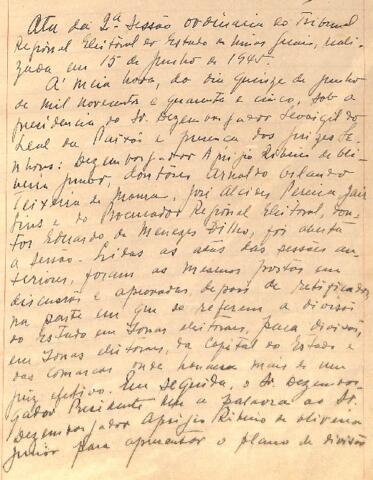 Ata da 2ª Sessão ordinaria do Tribunal
Regional Eleitoral do Estado de Minas Gerais, reali-
zada em 15 de junho de 1945.
Á meia hora, do dia quinze de junho
de mil novecentos e quarenta e cinco, sob a
presidencia do Sr. Dezembargador Leovigildo
Leal da Paixão e presença dos juizes Se-
nhores: Dezembargador Aprigio Ribeiro de Oli-
veira Junior, doutores Arnaldo
Teixeira de Moura, José Alcides Pereira,
e do Procurador Regional Eleitoral, dou-
tor Eduardo de Menezes Filho, foi aberta
a sessão. Lidas as atas das sessões an-
teriores, foram as mesmas postas em
discussão e aprovadas, depois de retificadas,
na parte em que se referem a divisão
do Estado em Zonas eleitorais, para divisão,
em Zonas eleitorais, da Capital do Estado e
das Comarcas onde houvera mais de um
juiz efetivo. Em seguida, o Sr. Dezembar-
gador Presidente deu a palavra ao Sr.
Dezembargador Aprigio Ribeiro de Oliveira
Junior para apresentar o plano de divisão